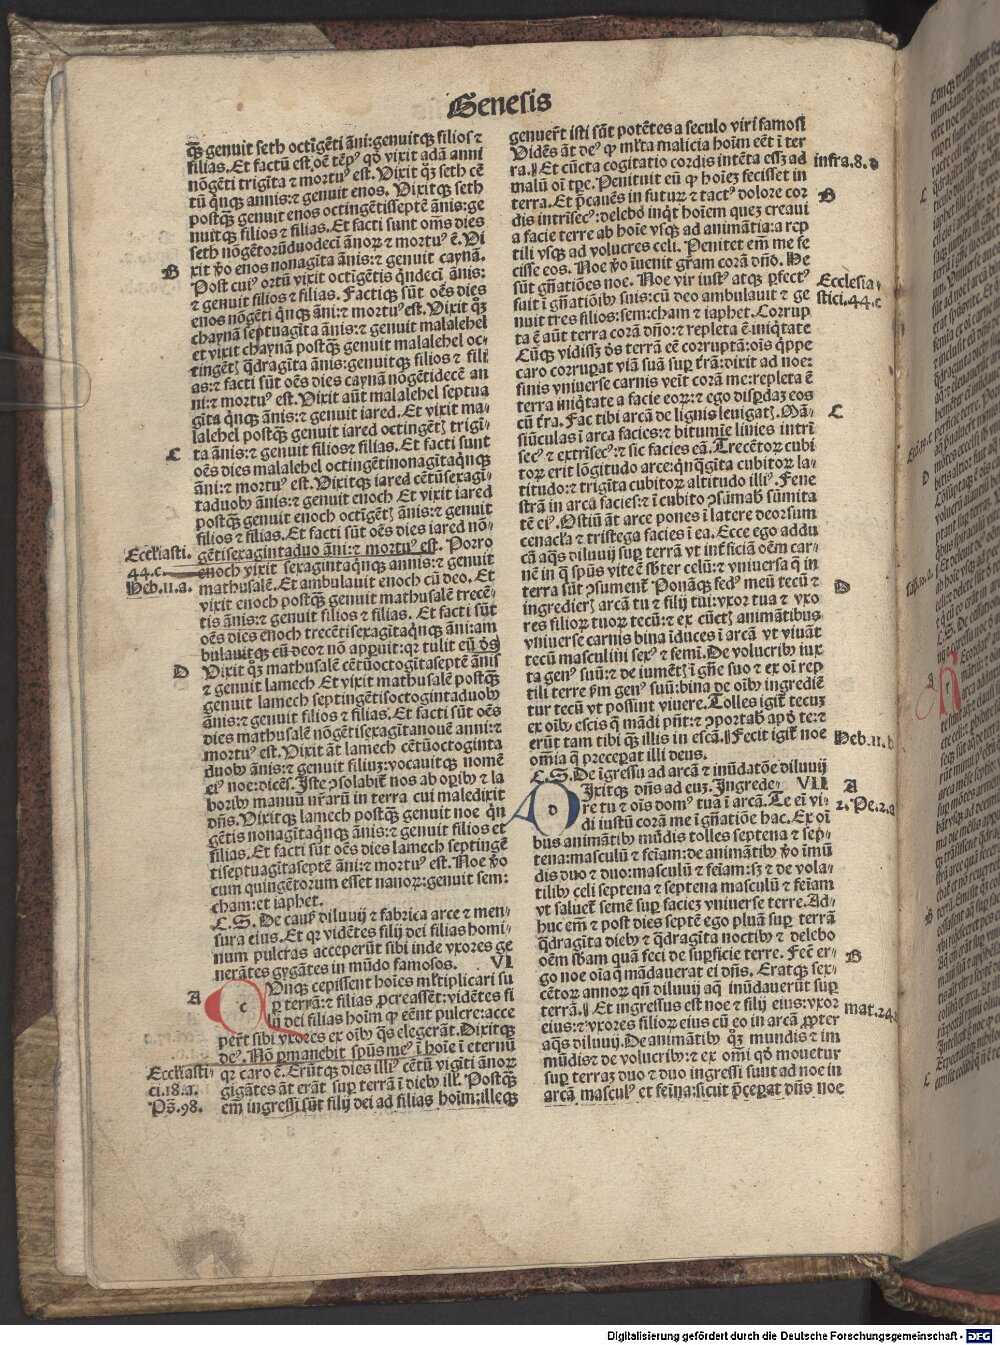 Genesis
q̄ꝫ genuit seth octīgēti āni:genuitqꝫ filios ⁊
filias. Et factū est oē tēpꝰ qd̄ vixit adā anni
nōgēti trigīta ⁊ mortuꝰ est. Vixit qꝫ seth cē
tū qnqꝫ annis:⁊ genuit enos. Vixitqꝫ seth
postqꝫ̄ genuit enos octingētisseptē ānis:ge
nuitqꝫ filios ⁊ filias. Et facti sunt om̄s dies
seth nōgētorūduodecī ānoꝝ ⁊ mortuꝰ ē. Vi
B
xit v̄o enos nonagīta ānis:⁊ genuit caynā.
Post cuiꝰ ortū vixit octīgētis qndecī ānis:
⁊ genuit filios ⁊ filias. Factiqꝫ sūt oēs dies
enos nōgēti qnqꝫ āni:⁊ mortuꝰ est. Vixit qꝫ
chaynā septuagīta ānis:⁊ genuit malalehel
et vixit chaynā postqꝫ̄ genuit malalehel oc-
tingētꝭ qdragīta ānis:genuitqꝫ filios ⁊ fili
as:⁊ facti sūt oēs dies caynā nōgētidecē an
ni:⁊ mortuꝰ est. Vixit aūt malalehel septua
gīta qnqꝫ ānis:⁊ genuit iared. Et vixit ma-
lalehel postqꝫ̄ genuit iared octingētꝭ trigī-
C
ta ānis:⁊ genuit filios⁊ filias. Et facti sunt
oēs dies malalehel octingētinonagītaqnqꝫ
āni:⁊ mortuꝰ est. Vixitqꝫ iared cētūsexagi-
taduobꝰ ānis:⁊ genuit enoch Et vixit iared
postqꝫ̄ genuit enoch octīgētꝭ ānis:⁊ genuit
filios ⁊ filias. Et facti sūt oēs dies iared nō-
Eccl̄iasti.
44.c.
Heb.11.a.
gētisexagintaduo āni:⁊ mortuꝰ est. Porro
enoch vixit sexagintaqnqꝫ annis:⁊ genuit
mathusalē. Et ambulauit enoch cū deo. Et
vixit enoch postqꝫ̄ genuit mathusalē trecē-
tis ānis:⁊ genuit filios ⁊ filias. Et facti sūt
oēs dies enoch trecētisexagītaqnqꝫ āni:am
bulauitqꝫ cū deo⁊ nō apparuit:qꝛ tulit eū ds̄
D
Vixit qꝫ mathusalē cētūoctogītaseptē ānis
⁊ genuit lamech Et vixit mathusalē postqꝫ̄
genuit lamech septingētisoctogintaduobꝰ
ānis:⁊ genuit filios ⁊ filias. Et facti sūt oēs
dies mathusalē nōgētisexagītanouē anni:⁊
mortuꝰ est. Vixit āt lamech cētūoctoginta
duobꝰ ānis:⁊ genuit filiuꝫ:vocauitqꝫ nomē
eiꝰ noe:dicēs. Iste ꝯsolabit̄ nos ab oꝑibꝰ ⁊ la
boribꝰ manuū nr̄arū in terra cui maledixit
dn̄s. Vixitqꝫ lamech postqꝫ̄ genuit noe qn
gētis nonagītaqnqꝫ ānis:⁊ genuit filios et
filias. Et facti sūt oēs dies lamech septingē
tiseptuagītaseptē āni:⁊ mortuꝰ est. Noe v̄o
cum quingētorum esset nanoꝝ:genuit sem:
cham:et iaphet.
C.S. De cauꝭ diluuij ⁊ fabrica arce ⁊ men-
sura eius. Et qꝛ vidētes filij dei filias homi-
num pulcras acceperūt sibi inde vxores ge
nerātes gygātes in mūdo famosos. VI
A
cUnqꝫ cepissent hoīes ml̄tiplicari su
ꝑ terrā:⁊ filias ꝓcreassēt:vidētes fi
lij dei filias hoīm ꝙ eēnt pulcre:acce
pert̄ sibi vxores ex oībꝰ q̄s elegerāt. Dixitqꝫ
deꝰ. Nō ꝑmanebit spūs meꝰ ī hoīe ī eternū
Eccl̄iasti-
ci.18.a.
Ps̄.98.
qꝛ caro ē. Erūtqꝫ dies illiꝰ cētū vigīti ānoꝝ
gigātes āt erāt suꝑ terrā ī diebꝰ ill̄. Postqꝫ̄
em̄ ingressi sūt filij dei ad filias hoīm:illeqꝫ
genuer̄t isti sūt potētes a seculo viri famosi
Vidēs āt deꝰ ꝙ ml̄ta malicia hoīm eēt ī ter
infra.8.d
ra. Et cūcta cogitatio cordis intēta essꝫ ad
malū oī tp̄e. Penituit eū ꝙ hoīeꝫ fecisset in
B
terra. Et p̄cauēs in futuꝝ ⁊ tactꝰ dolore cor
dis intrīsecꝰ:delebo inq̄t hoīem queꝫ creaui
a facie terre ab hoīe vsqꝫ ad animātia:a rep
tili vsqꝫ ad volucres celi. Penitet em̄ me fe
cisse eos. Noe v̄o īuenit gr̄am corā dn̄o. He
sūt gn̄atiōes noe. Noe vir iustꝰ atqꝫ ꝑfectꝰ
Ecclesia-
stici.44.c
fuit ī gn̄atiōibꝰ suis:cū deo ambulauit ⁊ ge
nuit tres filios:sem:cham ⁊ iaphet. Corrup
ta ē aūt terra corā dn̄o:⁊ repleta ē iniq̄tate
Cūqꝫ vidissꝫ ds̄ terrā eē corruptā:oīs q̄ppe
caro corruꝑat viā suā suꝑ t̄rā:dixit ad noe:
finis vniuerse carnis veīt corā me:repleta ē
terra iniq̄tate a facie eoꝝ:⁊ ego disꝑdaꝫ eos
C
cū t̄ra. Fac tibi arcā de lignis leuigatꝭ. Mā-
siūculas ī arca facies:⁊ bitumīe linies intrī
secꝰ ⁊ extrīsecꝰ:⁊ sic facies eā. Trecētoꝝ cubi
toꝝ erit lōgitudo arce:qnq̄gīta cubitoꝝ la-
titudo:⁊ trigīta cubitoꝝ altitudo illiꝰ. Fene
strā in arca facies:⁊ ī cubito ꝯsūmabꝭ sūmita
tē eiꝰ. Ostiū āt arce pones ī latere deorsum
cenacl̄a ⁊ tristega facies ī ea. Ecce ego addu
cā aqꝭ diluuij suꝑ terrā vt int̄ficiā oēm car-
nē in q̄ spūs vite ē sbter celū:⁊ vniuersa q̄ in
D
terra sūt ꝯsument̄ Ponāqꝫ fedꝰ meū tecū ⁊
ingredierꝭ arcā tu ⁊ filij tui:vxor tua ⁊ vxo
res filioꝝ tuoꝝ tecū:⁊ ex cūctꝭ animātibus
vniuerse carnis bina īduces ī arcā vt viuāt
tecū masculini sexꝰ ⁊ femī. De volucribꝰ iux
ta genꝰ suū:⁊ de iumētꝭ ī gn̄e suo ⁊ ex oī rep
tili terre ẜm genꝰ suū:bina de oībꝰ ingrediē
tur tecū vt possint viuere. Tolles igit̄ tecuꝫ
ex oībꝰ escis q̄ mādi pn̄t:⁊ ꝯportabꝭ apd̄ te:⁊
Heb.11.b
erūt tam tibi qꝫ̄ illis in escā. Fecit igit̄ noe
om̄ia q̄ preceꝑat illi deus.
C.S. De īgressu ad arcā ⁊ inūdatōe diluuij
A
2.Pe.2.a
dIxitqꝫ dn̄s ad euꝫ. Ingrede- VII
re tu ⁊ oīs domꝰ tua ī arcā. Te em̄ vi-
di iustū corā me ī gn̄atiōe hac. Ex oī
bus animātibꝰ mūdis tolles septena ⁊ sep-
tena:masculū ⁊ feīam:de animātibꝰ v̄o īmū
dis duo ⁊ duo:masculū ⁊ feīam:sꝫ ⁊ de vola-
tilibꝰ celi septena ⁊ septena masculū ⁊ feīam
vt saluet̄ semē suꝑ facieꝫ vniuerse terre. Ad-
huc em̄ ⁊ post dies septē ego pluā suꝑ terrā
q̄dragīta diebꝰ ⁊ q̄dragīta noctibꝰ ⁊ delebo
B
oēm sbam quā feci de suꝑficie terre. Fec̄ er-
go noe oīa q̄ mādauerat ei dn̄s. Eratqꝫ sex-
cētoꝝ annoꝝ qn̄ diluuij aq̄ inūdauerūt suꝑ
mat.24.
terrā. Et ingressus est noe ⁊ filij eius:vxor
eius:⁊ vxores filioꝝ eius cū eo in arcā ꝓpter
aqꝭ diluuij. De animātibꝰ qꝫ mundis ⁊ im
mūdis⁊ de volucribꝰ:⁊ ex omī qd̄ mouetur
suꝑ terraꝫ duo ⁊ duo ingressi sunt ad noe in
arcā masculꝰ et feīna:sicut p̄ceꝑat dn̄s noe
Digitalisierung gefördert durch die Deutsche Forschungsgemeinschaft - DFG